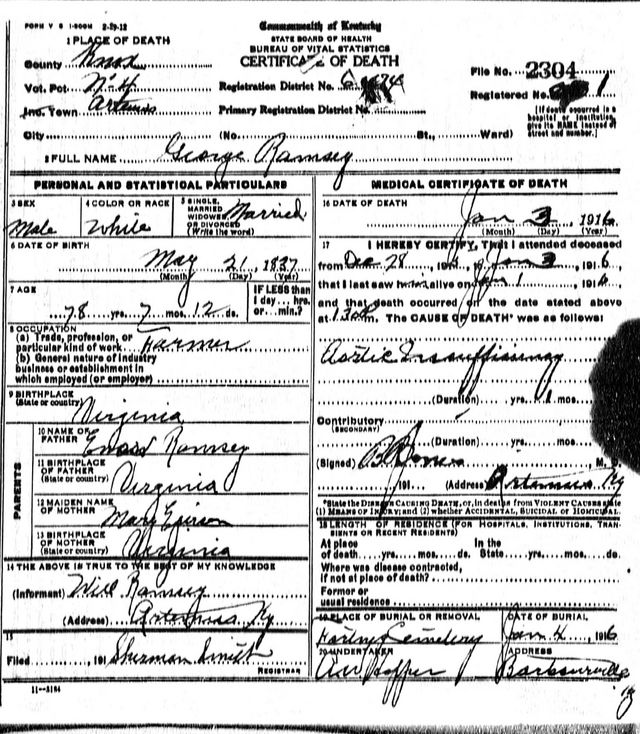 FORM V S 1-500M 2-29-12
Commonwealth of Kentucky
STATE BOARD OF HEALTH
BUREAU OF VITAL STATISTICS
CERTIFICATE OF DEATH
1 PLACE OF DEATH
County Knox
Vot. Pct
Inc. Town Artemus
City (No. St., Ward)
Registration District No.
Primary Registration District No.
File No. 2304
Registered No. 1
[If death occurred in a hospital or institution, give its NAME instead of street and number.]
2 FULL NAME George Ramsey
PERSONAL AND STATISTICAL PARTICULARS
3 SEX
Male
4 COLOR OR RACE
White
5 SINGLE, MARRIED WIDOWED OR DIVORCED (Write the word)
Married
6 DATE OF BIRTH
May 21, 1837
(Month) (Day) (Year)
7 AGE
78 yrs. 7 mos. 12 ds.
IF LESS than 1 day... hrs. or... min.?
8 OCCUPATION
(a) Trade, profession, or particular kind of work Farmer
(b) General nature of industry business or establishment in which employed (or employer)
9 BIRTHPLACE
(State or country) Virginia
PARENTS
10 NAME OF FATHER Ramsey
11 BIRTHPLACE OF FATHER
(State or country) Virginia
12 MAIDEN NAME OF MOTHER Mary
13 BIRTHPLACE OF MOTHER
(State or country) Virginia
14 THE ABOVE IS TRUE TO THE BEST OF MY KNOWLEDGE
(Informant) Will Ramsey
(Address) Artemus Ky
15
Filed , 191 Sherman Smith
REGISTRAR
11-3184
MEDICAL CERTIFICATE OF DEATH
16 DATE OF DEATH
Jan 3, 1916
(Month) (Day) (Year)
17 I HEREBY CERTIFY, That I attended deceased
from Dec 28, 191 , to Jan 3, 1916
that I last saw him alive on Jan 1, 1916
and that death occurred on the date stated above
at 130 m. The CAUSE OF DEATH* was as follows:
Aortic Insuffissincy
(Duration) yrs. mos.
Contributory
(SECONDARY)
(Duration) yrs. mos.
(Signed) Jones M. D.
, 191 (Address) Artemus Ky
*State the DISEASE CAUSING DEATH, or, in deaths from VIOLENT CAUSES state (1) MEANS OF INJURY; and (2) whether ACCIDENTAL, SUICIDAL or HOMICIDAL.
18 LENGTH OF RESIDENCE (FOR HOSPITALS, INSTITUTIONS, TRANSIENTS OR RECENT RESIDENTS)
At place of death yrs. mos. ds. In the State yrs. mos. ds.
Where was disease contracted, if not at place of death?
Former or usual residence
19 PLACE OF BURIAL OR REMOVAL
Cemetery
DATE OF BURIAL
Jan 4, 1916
20 UNDERTAKER
ADDRESS
Barbourville Ky